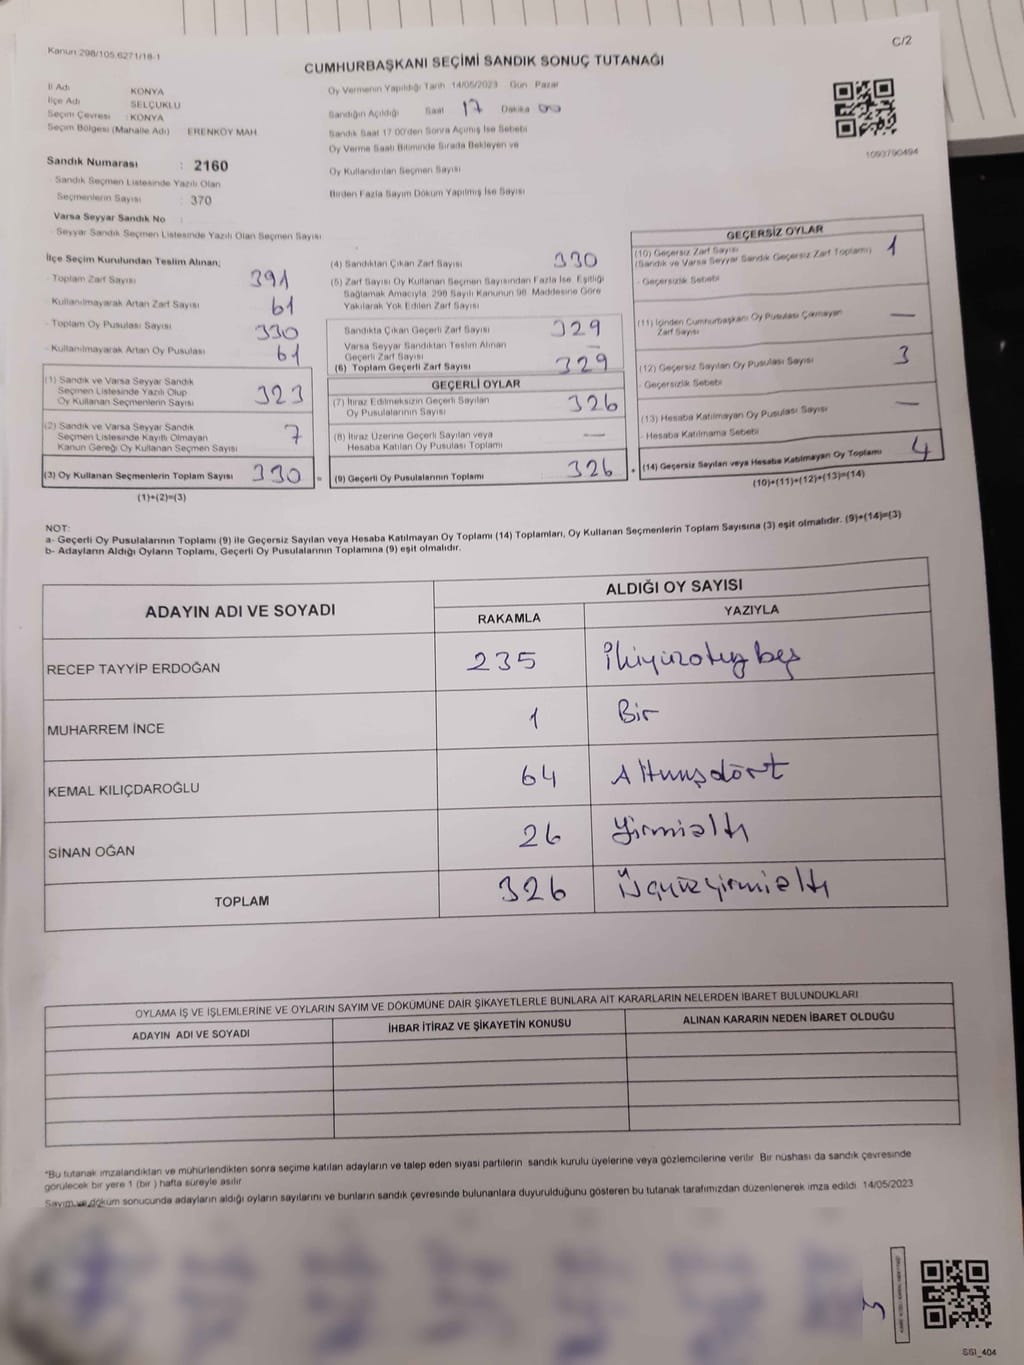 Kanun 298/105,6271/18-1
C/2
CUMHURBAŞKANI SEÇİMİ SANDIK SONUÇ TUTANAĞI
İl Adı KONYA
İlçe Adı SELÇUKLU
Seçim Çevresi : KONYA
Seçim Bölgesi (Mahalle Adı) ERENKÖY MAH
Sandık Numarası : 2160
- Sandık Seçmen Listesinde Yazılı Olan
Seçmenlerin Sayısı : 370
Varsa Seyyar Sandık No
- Seyyar Sandık Seçmen Listesinde Yazılı Olan Seçmen Sayısı
Oy Vermenin Yapıldığı Tarih 14/05/2023 Gün Pazar
Sandığın Açıldığı Saat 17 Dakika 00
Sandık Saat 17.00'den Sonra Açılmış İse Sebebi
Oy Verme Saati Bitiminde Sırada Bekleyen ve
Oy Kullandırılan Seçmen Sayısı
Birden Fazla Sayım Döküm Yapılmış İse Sayısı
1093790494
İlçe Seçim Kurulundan Teslim Alınan;
- Toplam Zarf Sayısı 391
- Kullanılmayarak Artan Zarf Sayısı 61
- Toplam Oy Pusulası Sayısı 330
- Kullanılmayarak Artan Oy Pusulası 61
(1) Sandık ve Varsa Seyyar Sandık
Seçmen Listesinde Yazılı Olup
Oy Kullanan Seçmenlerin Sayısı 323
(2) Sandık ve Varsa Seyyar Sandık
Seçmen Listesinde Kayıtlı Olmayan
Kanun Gereği Oy Kullanan Seçmen Sayısı 7
(3) Oy Kullanan Seçmenlerin Toplam Sayısı 330
(1)+(2)=(3)
(4) Sandıktan Çıkan Zarf Sayısı 330
(5) Zarf Sayısı Oy Kullanan Seçmen Sayısından Fazla İse, Eşitliği
Sağlamak Amacıyla, 298 Sayılı Kanunun 98. Maddesine Göre
Yakılarak Yok Edilen Zarf Sayısı
Sandıkta Çıkan Geçerli Zarf Sayısı 329
Varsa Seyyar Sandıktan Teslim Alınan
Geçerli Zarf Sayısı —
(6) Toplam Geçerli Zarf Sayısı 329
GEÇERLİ OYLAR
(7) İtiraz Edilmeksizin Geçerli Sayılan
Oy Pusulalarının Sayısı 326
(8) İtiraz Üzerine Geçerli Sayılan veya
Hesaba Katılan Oy Pusulası Toplamı —
= (9) Geçerli Oy Pusulalarının Toplamı 326
GEÇERSİZ OYLAR
(10) Geçersiz Zarf Sayısı
(Sandık ve Varsa Seyyar Sandık Geçersiz Zarf Toplamı) 1
- Geçersizlik Sebebi
(11) İçinden Cumhurbaşkanı Oy Pusulası Çıkmayan
Zarf Sayısı —
(12) Geçersiz Sayılan Oy Pusulası Sayısı 3
- Geçersizlik Sebebi
(13) Hesaba Katılmayan Oy Pusulası Sayısı —
- Hesaba Katılmama Sebebi
+ (14) Geçersiz Sayılan veya Hesaba Katılmayan Oy Toplamı 4
(10)+(11)+(12)+(13)=(14)
NOT:
a- Geçerli Oy Pusulalarının Toplamı (9) ile Geçersiz Sayılan veya Hesaba Katılmayan Oy Toplamı (14) Toplamları, Oy Kullanan Seçmenlerin Toplam Sayısına (3) eşit olmalıdır. (9)+(14)=(3)
b- Adayların Aldığı Oyların Toplamı, Geçerli Oy Pusulalarının Toplamına (9) eşit olmalıdır.
ADAYIN ADI VE SOYADI ALDIĞI OY SAYISI
RAKAMLA YAZIYLA
RECEP TAYYİP ERDOĞAN 235 İkiyüzotuzbeş
MUHARREM İNCE 1 Bir
KEMAL KILIÇDAROĞLU 64 Altmışdört
SİNAN OĞAN 26 Yirmialtı
TOPLAM 326 Üçyüzyirmialtı
OYLAMA İŞ VE İŞLEMLERİNE VE OYLARIN SAYIM VE DÖKÜMÜNE DAİR ŞİKAYETLERLE BUNLARA AİT KARARLARIN NELERDEN İBARET BULUNDUKLARI
ADAYIN ADI VE SOYADI İHBAR İTİRAZ VE ŞİKAYETİN KONUSU ALINAN KARARIN NEDEN İBARET OLDUĞU
*Bu tutanak imzalandıktan ve mühürlendikten sonra seçime katılan adayların ve talep eden siyasi partilerin sandık kurulu üyelerine veya gözlemcilerine verilir. Bir nüshası da sandık çevresinde
görülecek bir yere 1 (bir) hafta süreyle asılır
Sayım ve döküm sonucunda adayların aldığı oyların sayılarını ve bunların sandık çevresinde bulunanlara duyurulduğunu gösteren bu tutanak tarafımızdan düzenlenerek imza edildi. 14/05/2023
SSI_404